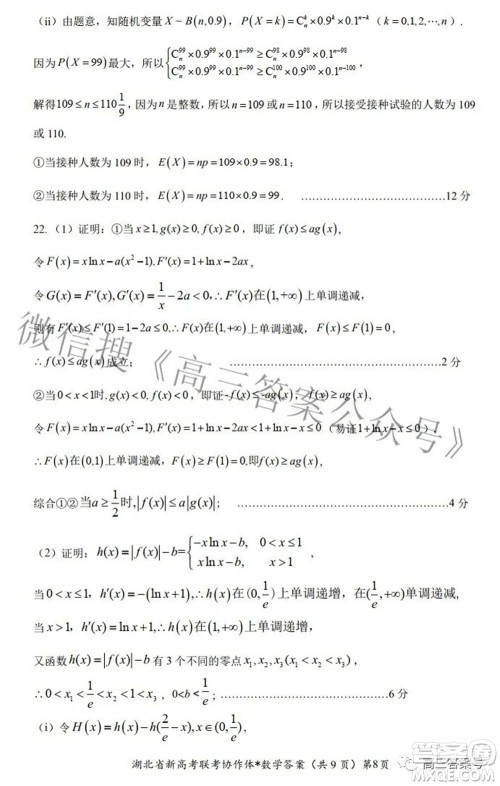 (ii) 由题意，知随机变量 X~B(n,0.9)，P(X=k)=C_n^k×0.9^k×0.1^{n-k}（k=0,1,2,⋯,n）.
因为P(X=99)最大，所以{C_n^99×0.9^99×0.1^{n-99}≥C_n^98×0.9^98×0.1^{n-98}
C_n^99×0.9^99×0.1^{n-99}≥C_n^100×0.9^100×0.1^{n-100},
解得109≤n≤110 1/9，因为n是整数，所以n=109或n=110，所以接受接种试验的人数为109
或110.
①当接种人数为109时，E(X)=np=109×0.9=98.1；
②当接种人数为110时，E(X)=np=110×0.9=99. ……………………12分
22.（1）证明：①当x≥1,g(x)≥0,f(x)≥0，即证f(x)≤ag(x),
令F(x)=xlnx-a(x²-1),F′(x)=1+lnx-2ax,
令G(x)=F′(x),G′(x)=1/x-2a<0,∴F′(x)在(1,+∞)上单调递减,
则有F′(x)≤F′(1)=1-2a≤0,∴F(x)在(1,+∞)上单调递减，F(x)≤F(1)=0,
∴f(x)≤ag(x)成立； ……………………2分
②当0<x<1时,g(x)<0,f(x)<0，即证-f(x)≤-ag(x)，f(x)≥ag(x)
令F(x)=xlnx-a(x²-1),F′(x)=1+lnx-2ax≤1+lnx-x≤0（易证1+lnx-x≤0）,
∴F(x)在(0,1)上单调递减，F(x)>F(1)=0,即f(x)≥ag(x),
综合①②当a≥1/2时,|f(x)|≤a|g(x)|； ……………………4分
（2）证明：h(x)=|f(x)|-b={-xlnx-b, 0<x≤1
xlnx-b, x>1，
当0<x≤1,h′(x)=-(lnx+1),∴h(x)在(0,1/e)上单调递增，在(1/e,+∞)单调递减,
当x>1,h′(x)=lnx+1,∴h(x)在(1,+∞)上单调递增，
又函数h(x)=|f(x)|-b有3个不同的零点x₁,x₂,x₃(x₁<x₂<x₃),
∴0<x₁<1/e<x₂<1<x₃，0<b<1/e；……………………6分
(i) 令H(x)=h(x)-h(2/e-x),x∈(0,1/e),
湖北省新高考联考协作体*数学答案（共9页）第8页
微信搜《高三答案公众号》
高三答案号